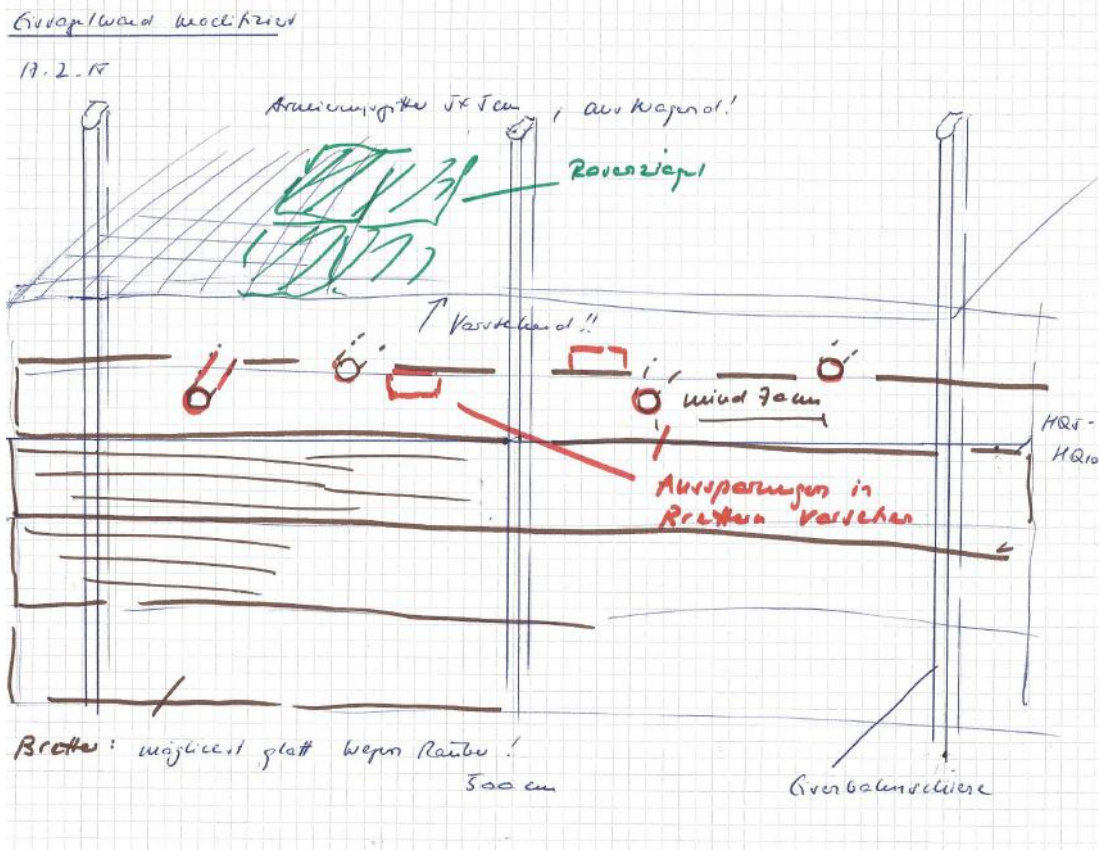 Eisvogelwand modifiziert
Armierungsgitter 5x5cm, auskragend!
Rasenziegel
Vorstehend!!
mind 70cm
HQ5-
HQ10
Aussparungen in
Brettern vorsehen
Bretter: möglichst glatt wegen Räuber!
500 cm
Eisenbahnschiene